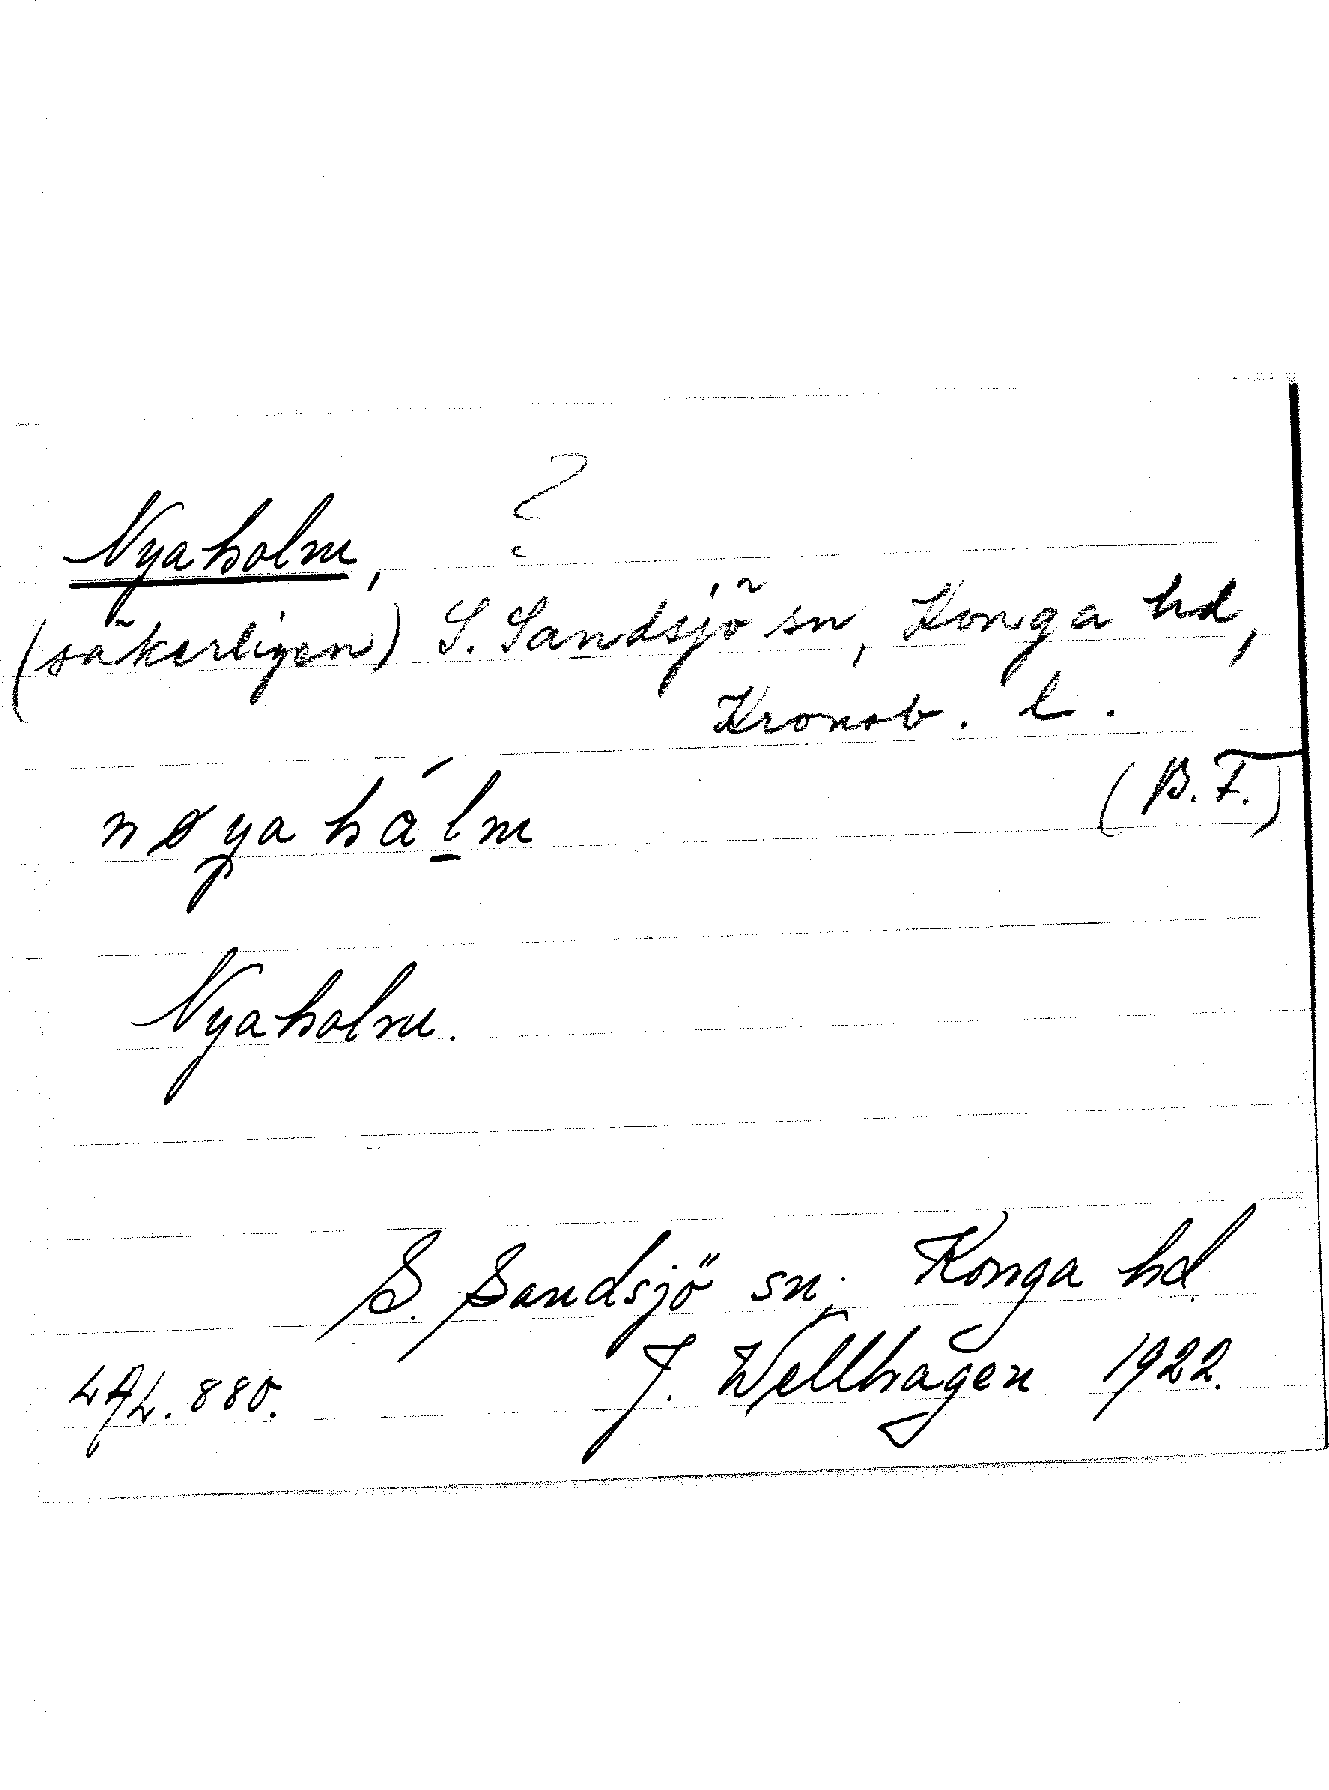 Nyaholm, ?
(säkerligen) S. Sandsjö sn, Konga hd,
Kronob. l.
(B.F.)
nøya hálm
Nyaholm.
S. Sandsjö sn. Konga hd.
LAL. 880. J. Wellhagen 1922.